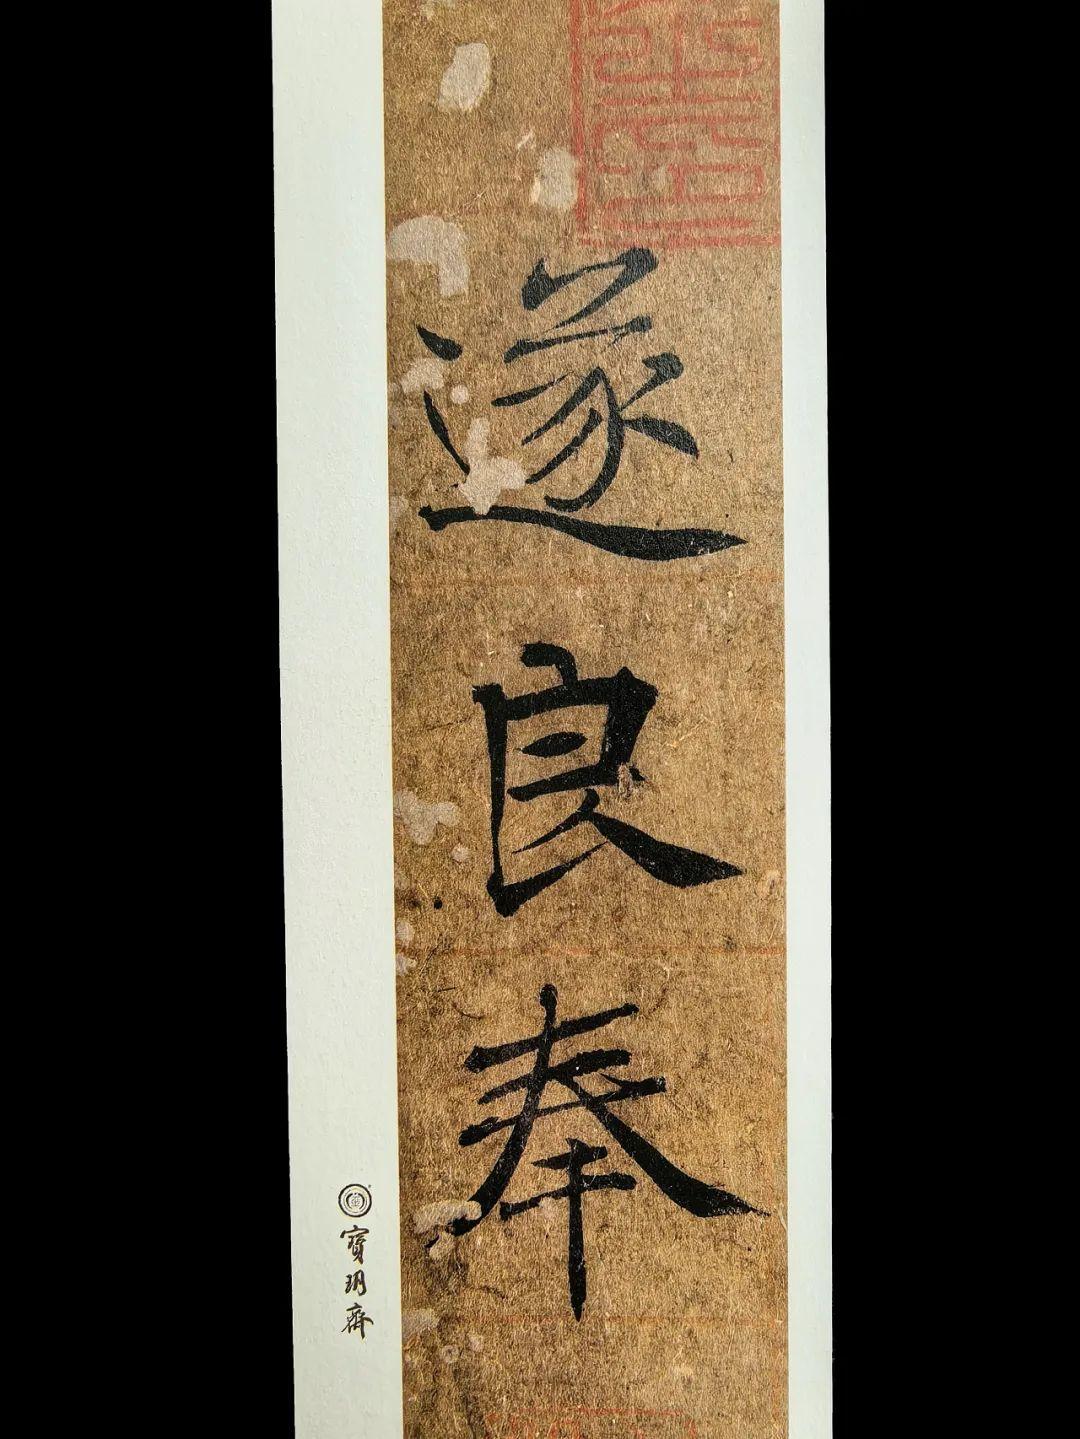 遂良奉
寶玥齋